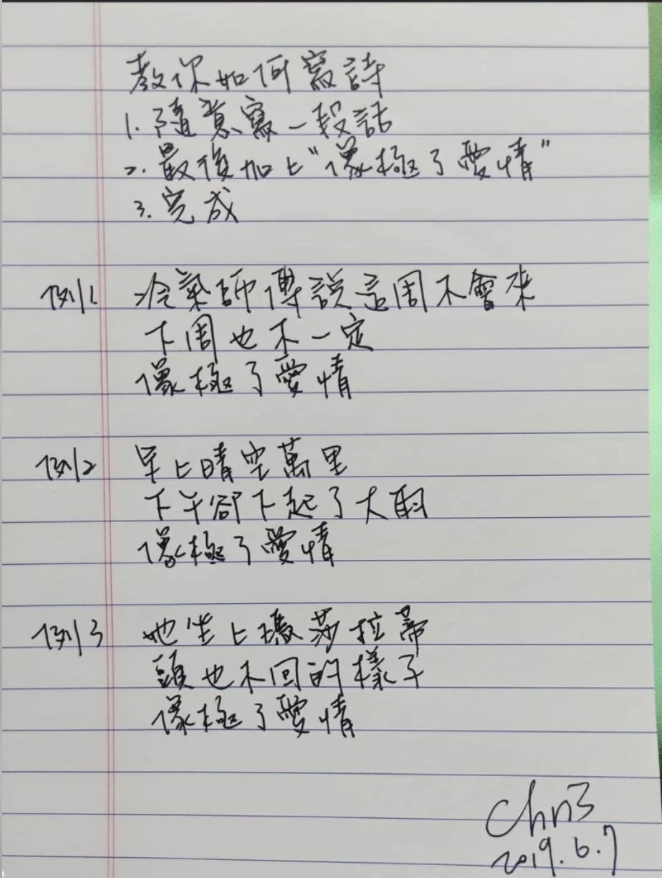 教你如何寫詩
1. 隨意寫一段話
2. 最後加上"像極了愛情"
3. 完成
例1 冷氣師傅說這周不會來
下周也不一定
像極了愛情
例2 早上晴空萬里
下午卻下起了大雨
像極了愛情
例3 她坐上瑪莎拉蒂
頭也不回的樣子
像極了愛情
2019.6.7